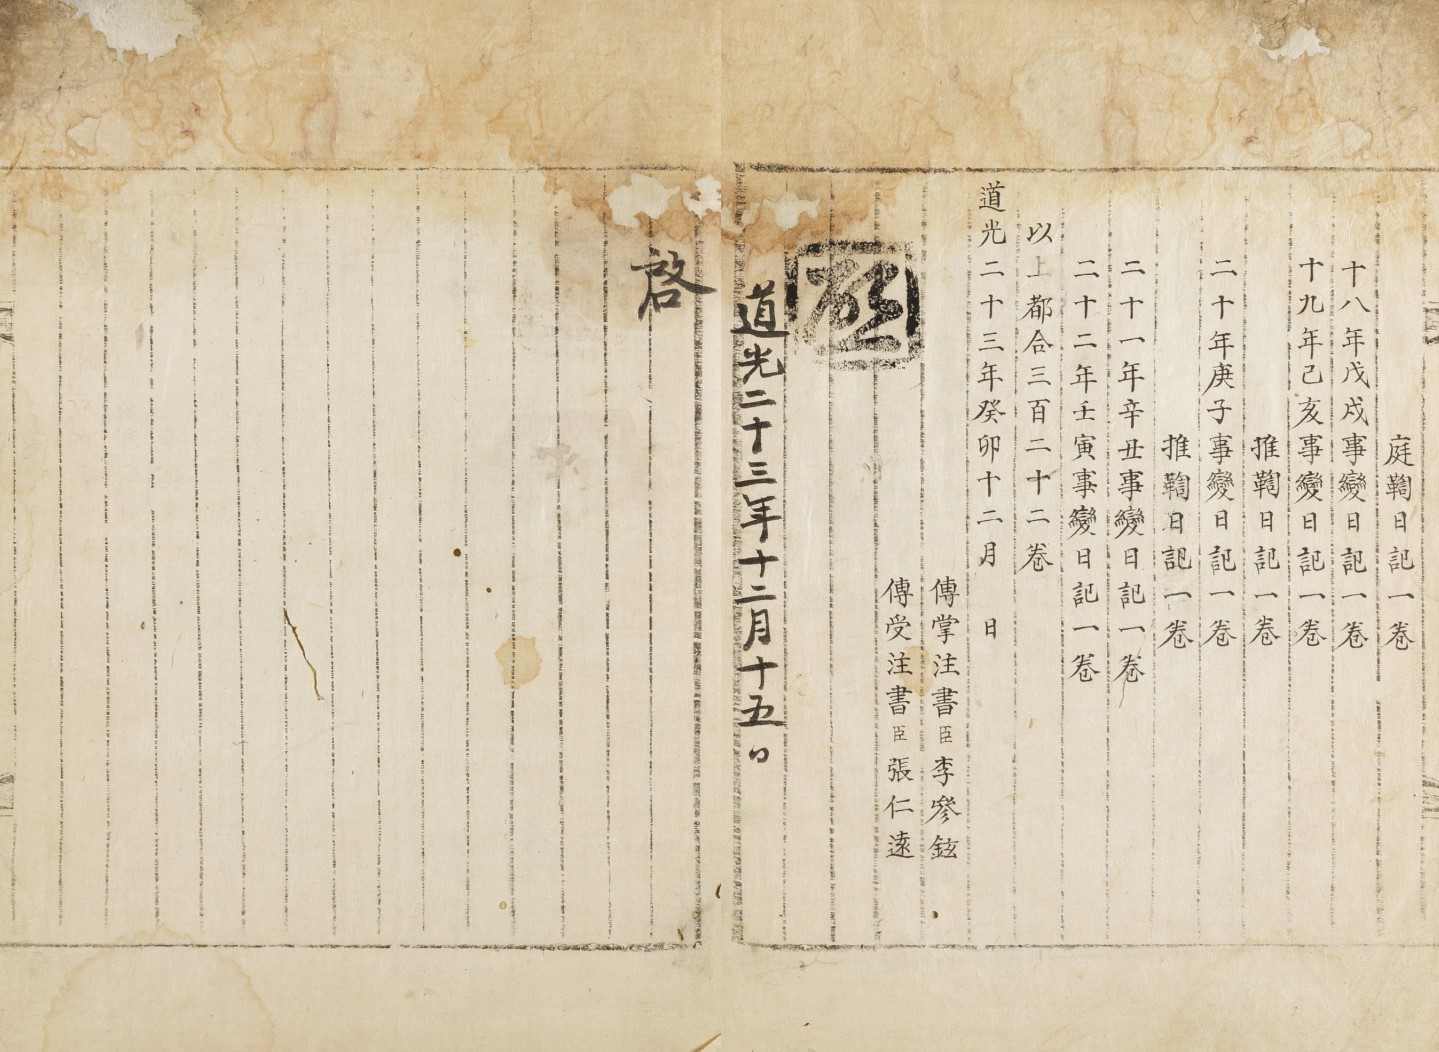 庭鞫日記一卷
十八年戊戌事變日記一卷
十九年己亥事變日記一卷
推鞫日記一卷
二十年庚子事變日記一卷
推鞫日記一卷
二十一年辛丑事變日記一卷
二十二年壬寅事變日記一卷
以上都合三百二十二卷
道光二十三年癸卯十二月 日
傳掌注書臣李參鉉
傳受注書臣張仁遠
啓
道光二十三年十二月十五日
啓